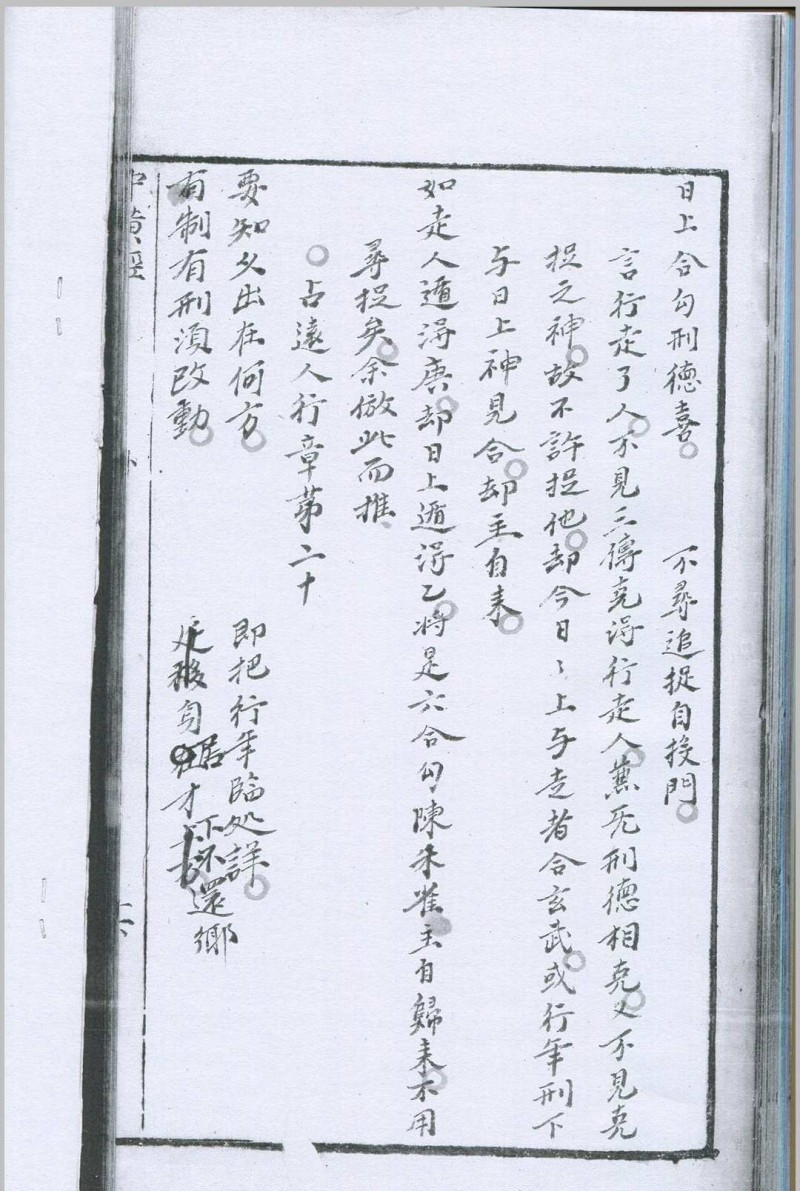 日上合勾刑德喜　不尋追捉自投門
言行走了人不見三傳克得行走人兼无刑德相克又不見克
捉之神故不許捉他却今日〻上与走者合玄武或行年刑下
与日上神見合却主自来
如走人遁得庚却日上遁得乙将是六合勾陳朱雀主自歸来不用
尋捉矣余倣此而推
占遠人行章苐二十
要知父出在何方　即把行年臨処詳
有制有刑須改動　旬居才下不還鄉
中黃經